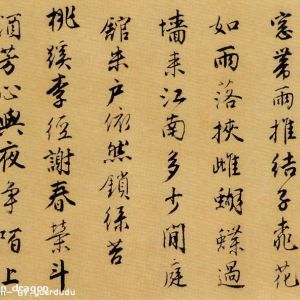 窓雨推結子飛花
如雨落挾雌蝴蝶過
墻来江南多少閒庭
館朱户依然鎖緑苔
桃蹊李徑謝春榮斗
酒芳心與夜争陌上
dragon